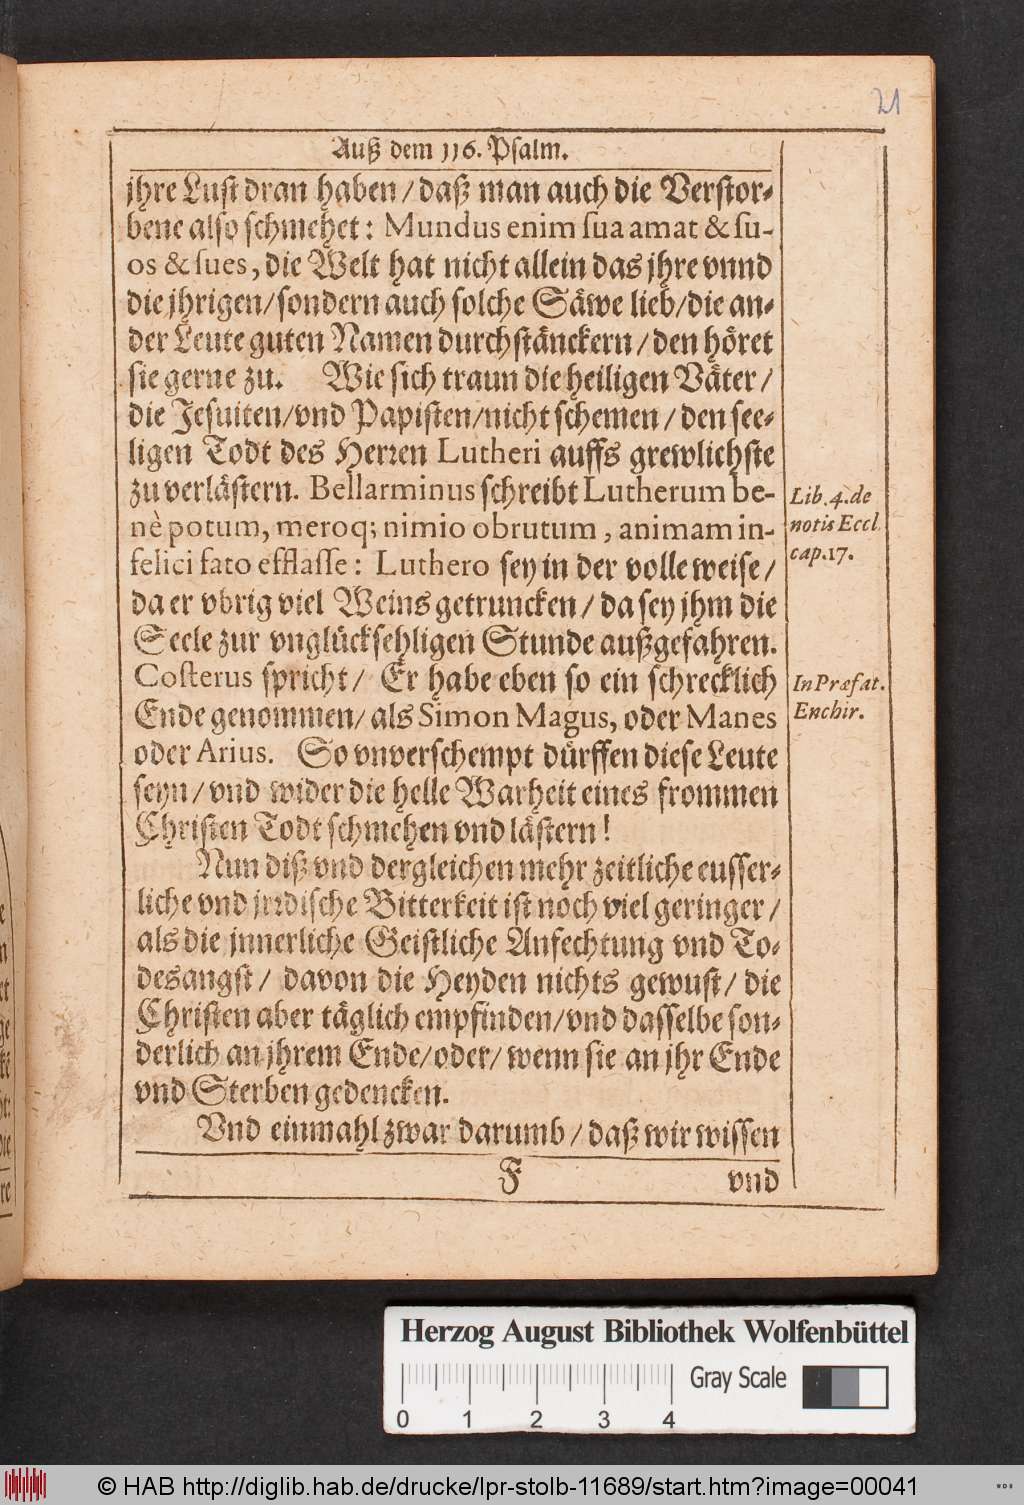 21
Auß dem 116. Psalm.
jhre Lust dran haben / daß man auch die Verstor-
bene also schmehet: Mundus enim ſua amat & ſu-
os & ſues, die Welt hat nicht allein das jhre vnnd
die jhrigen/ sondern auch solche Säwe lieb/ die an-
der Leute guten Namen durchstänckern / den höret
sie gerne zu. Wie sich traun die heiligen Väter /
die Jesuiten/ vnd Papisten/ nicht schemen / den see-
ligen Todt des Herren Lutheri auffs grewlichste
zu verlästern. Bellarminus schreibt Lutherum be-
nè potum, meroq; nimio obrutum, animam in-
felici fato efflaſſe: Luthero sey in der volle weise /
da er vbrig viel Weins getruncken / da sey jhm die
Seele zur vnglücksehligen Stunde außgefahren.
Coſterus spricht / Er habe eben so ein schrecklich
Ende genommen / als Simon Magus, oder Manes
oder Arius. So vnverschempt dürffen diese Leute
seyn / vnd wider die helle Warheit eines frommen
Christen Todt schmehen vnd lästern!
Nun diß vnd dergleichen mehr zeitliche eusser-
liche vnd jrrdische Bitterkeit ist noch viel geringer /
als die jnnerliche Geistliche Anfechtung vnd To-
desangst / davon die Heyden nichts gewust / die
Christen aber täglich empfinden / vnd dasselbe son-
derlich an jhrem Ende / oder / wenn sie an jhr Ende
vnd Sterben gedencken.
Vnd einmahl zwar darumb / daß wir wissen
F vnd
Lib. 4. de
notis Eccl.
cap. 17.
In Præfat.
Enchir.
Herzog August Bibliothek Wolfenbüttel
Gray Scale
0 1 2 3 4
© HAB http://diglib.hab.de/drucke/lpr-stolb-11689/start.htm?image=00041